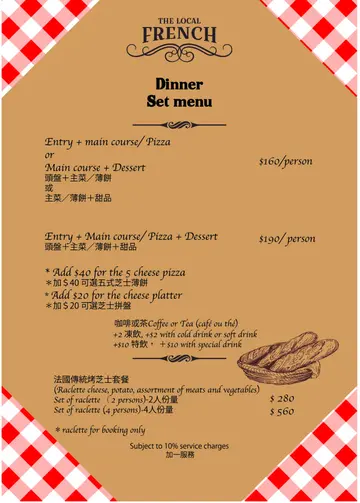 THE LOCAL
FRENCH
Dinner
Set menu
Entry + main course/ Pizza
or
Main course + Dessert
$160/person
頭盤＋主菜／薄餅
或
主菜／薄餅＋甜品
Entry + Main course/ Pizza + Dessert
$190/ person
頭盤＋主菜／薄餅＋甜品
* Add $40 for the 5 cheese pizza
＊加＄40 可選五式芝士薄餅
* Add $20 for the cheese platter
＊加＄20 可選芝士拼盤
咖啡或茶Coffee or Tea (café ou thé)
+2 凍飲, +$2 with cold drink or soft drink
+$10 特飲， +$10 with special drink
法國傳統烤芝士套餐
(Raclette cheese, potato, assortment of meats and vegetables)
Set of raclette （2 persons)-2人份量 $ 280
Set of raclette (4 persons)-4人份量 $ 560
* raclette for booking only
Subject to 10% service charges
加一服務